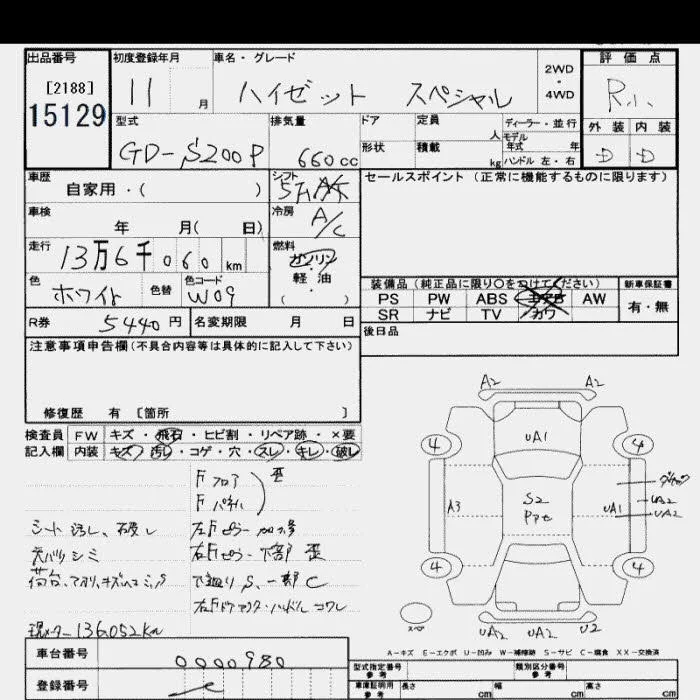 出品番号 初度登録年月 車名・グレード 評価点
[2188] 11 月 ハイゼット スペシャル 2WD・4WD R
15129 型式 排気量 ドア 定員 人 ディーラー・並行 外装 内装
GD-S200P 660cc 形状 積載 kg モデル年式 年 ハンドル 左・右 D D
車歴 自家用・( ) シフト 5F セールスポイント(正常に機能するものに限ります)
車検 年 月( 日) 冷房 A/C
走行 13万6千060km 燃料 ガソリン・軽油( )
色 ホワイト 色替 色コード W09
装備品(純正品に限り○をつけてください) 新車保証書
PS PW ABS AW 有・無
SR ナビ TV カワ
R券 5440円 名変期限 月 日 後日品
注意事項申告欄(不具合内容等は具体的に記入して下さい)
修復歴 有 [箇所 ]
検査員 FW キズ・飛石・ヒビ割・リペア跡・×要
記入欄 内装 キズ・汚し・コゲ・穴・スレ・キレ・破レ
Fフロア 歪
Fパネル
シート 汚レ、破レ
天バリ シミ
左Fピラー 下部 歪
下廻りS、一部C
現メーター136052Km
A2 A2
UA1
4 4
A3 S2 UA1 UA2
4 4
UA2 UA2 U2
A-キズ E-エクボ U-凹み W-補修跡 S-サビ C-腐食 XX-交換済
車台番号 0000980 型式指定番号 参考 類別区分番号 参考
登録番号 車庫証明用 参考 長さ cm 幅 cm 高さ cm